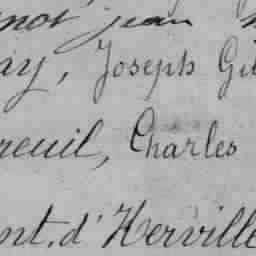 not jean
ay, Joseph Gil
reuil, Charles
nt. d'Herville